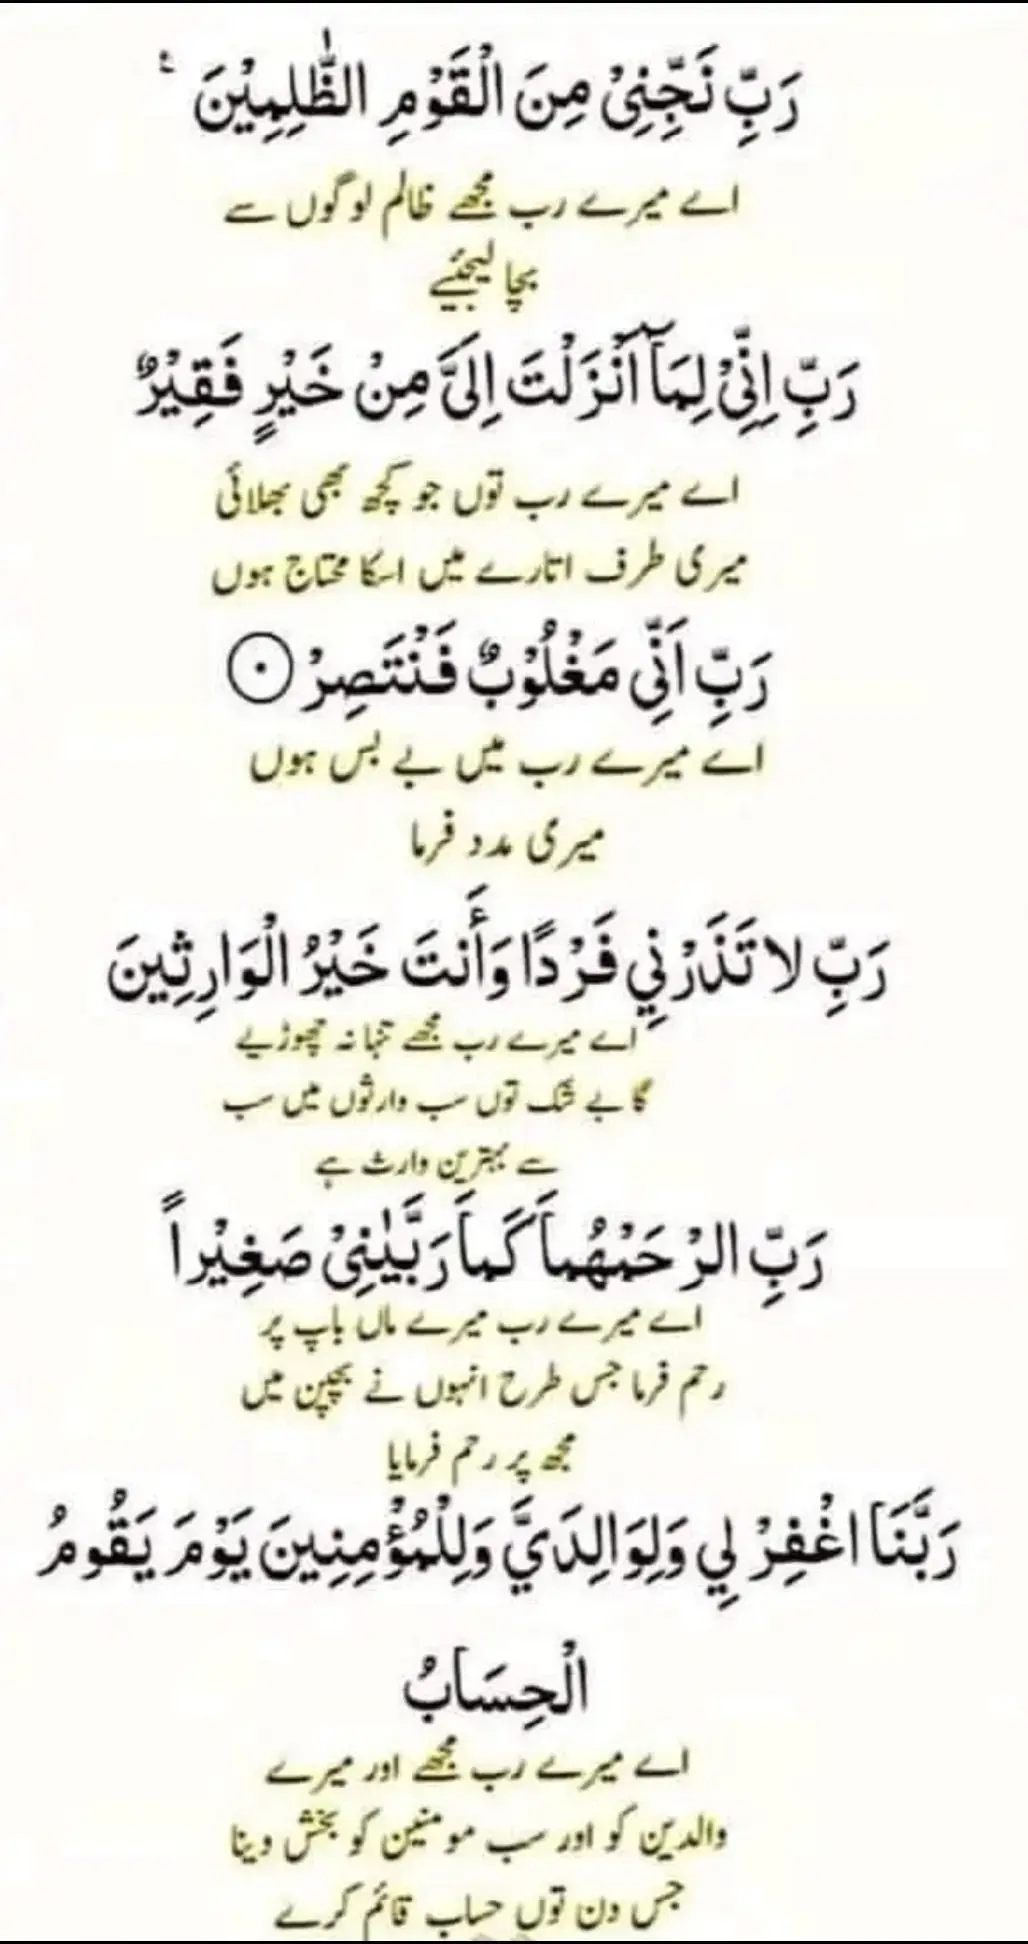 رَبِّ نَجِّنِيْ مِنَ الْقَوْمِ الظّٰلِمِيْنَ
اے میرے رب مجھے ظالم لوگوں سے
بچا لیجئیے
رَبِّ اِنِّيْ لِمَآ اَنْزَلْتَ اِلَيَّ مِنْ خَيْرٍ فَقِيْرٌ
اے میرے رب توں جو کچھ بھی بھلائی
میری طرف اتارے میں اسکا محتاج ہوں
رَبِّ اَنِّي مَغْلُوْبٌ فَنْتَصِرْ
اے میرے رب میں بے بس ہوں
میری مدد فرما
رَبِّ لا تَذَرْنِي فَرْدًا وَأَنتَ خَيْرُ الْوَارِثِينَ
اے میرے رب مجھے تنہا نہ چھوڑیے
گا بے شک توں سب وارثوں میں سب
سے بہترین وارث ہے
رَبِّ الرْحَمْهُمَا كَمَا رَبَّيٰنِيْ صَغِيْراً
اے میرے رب میرے ماں باپ پر
رحم فرما جس طرح انہوں نے بچپن میں
مجھ پر رحم فرمایا
رَبَّنَا اغْفِرْ لِي وَلِوَالِدَيَّ وَلِلْمُؤْمِنِينَ يَوْمَ يَقُومُ
الْحِسَابُ
اے میرے رب مجھے اور میرے
والدین کو اور سب مومنین کو بخش دینا
جس دن توں حساب قائم کرے